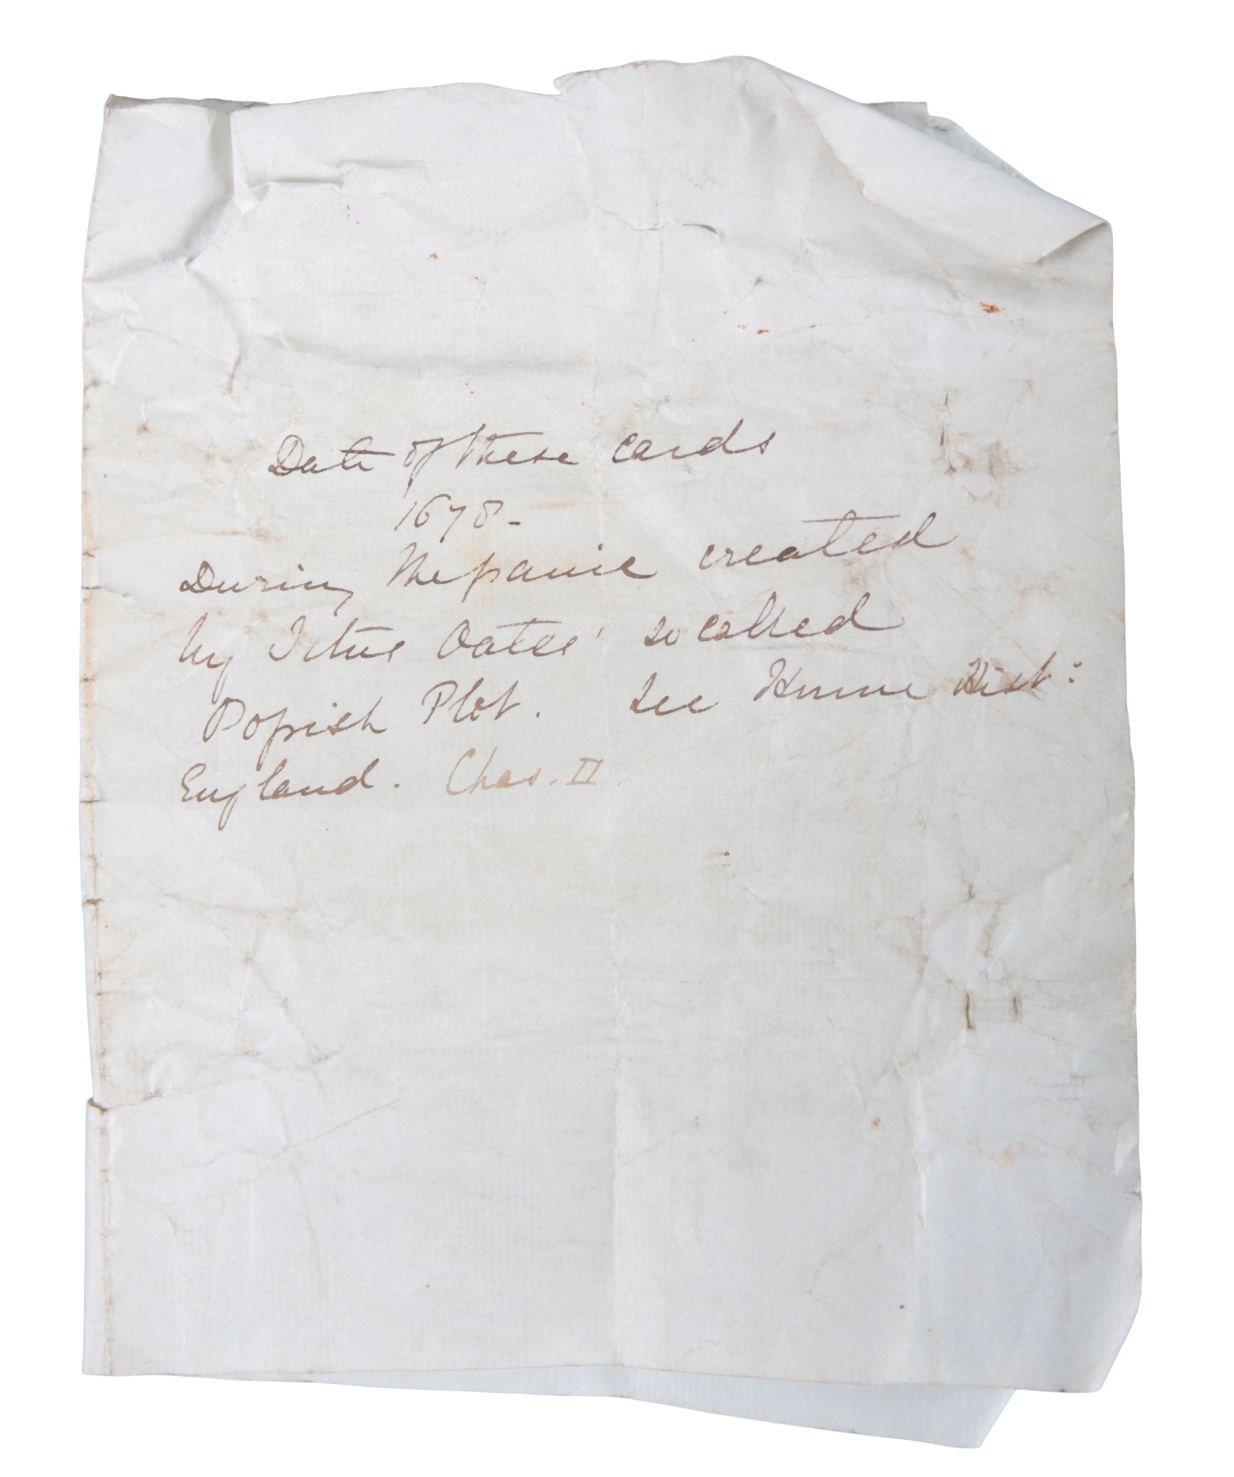 Date of these cards
1678-
During the panic created
by Titus Oates' so called
Popish Plot. See Hume Hist:
England. Chas. II